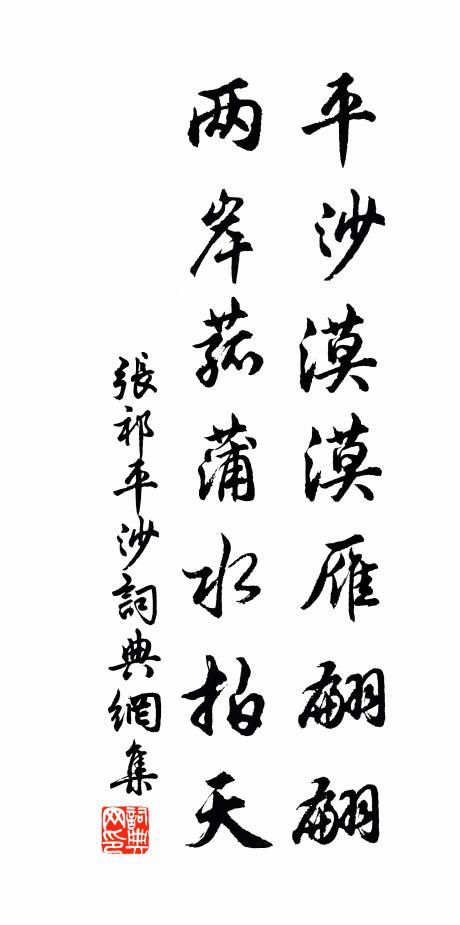 平沙漠漠雁翩翩
两岸菰蒲水拍天
張祁平沙詞典網集
詞典网印